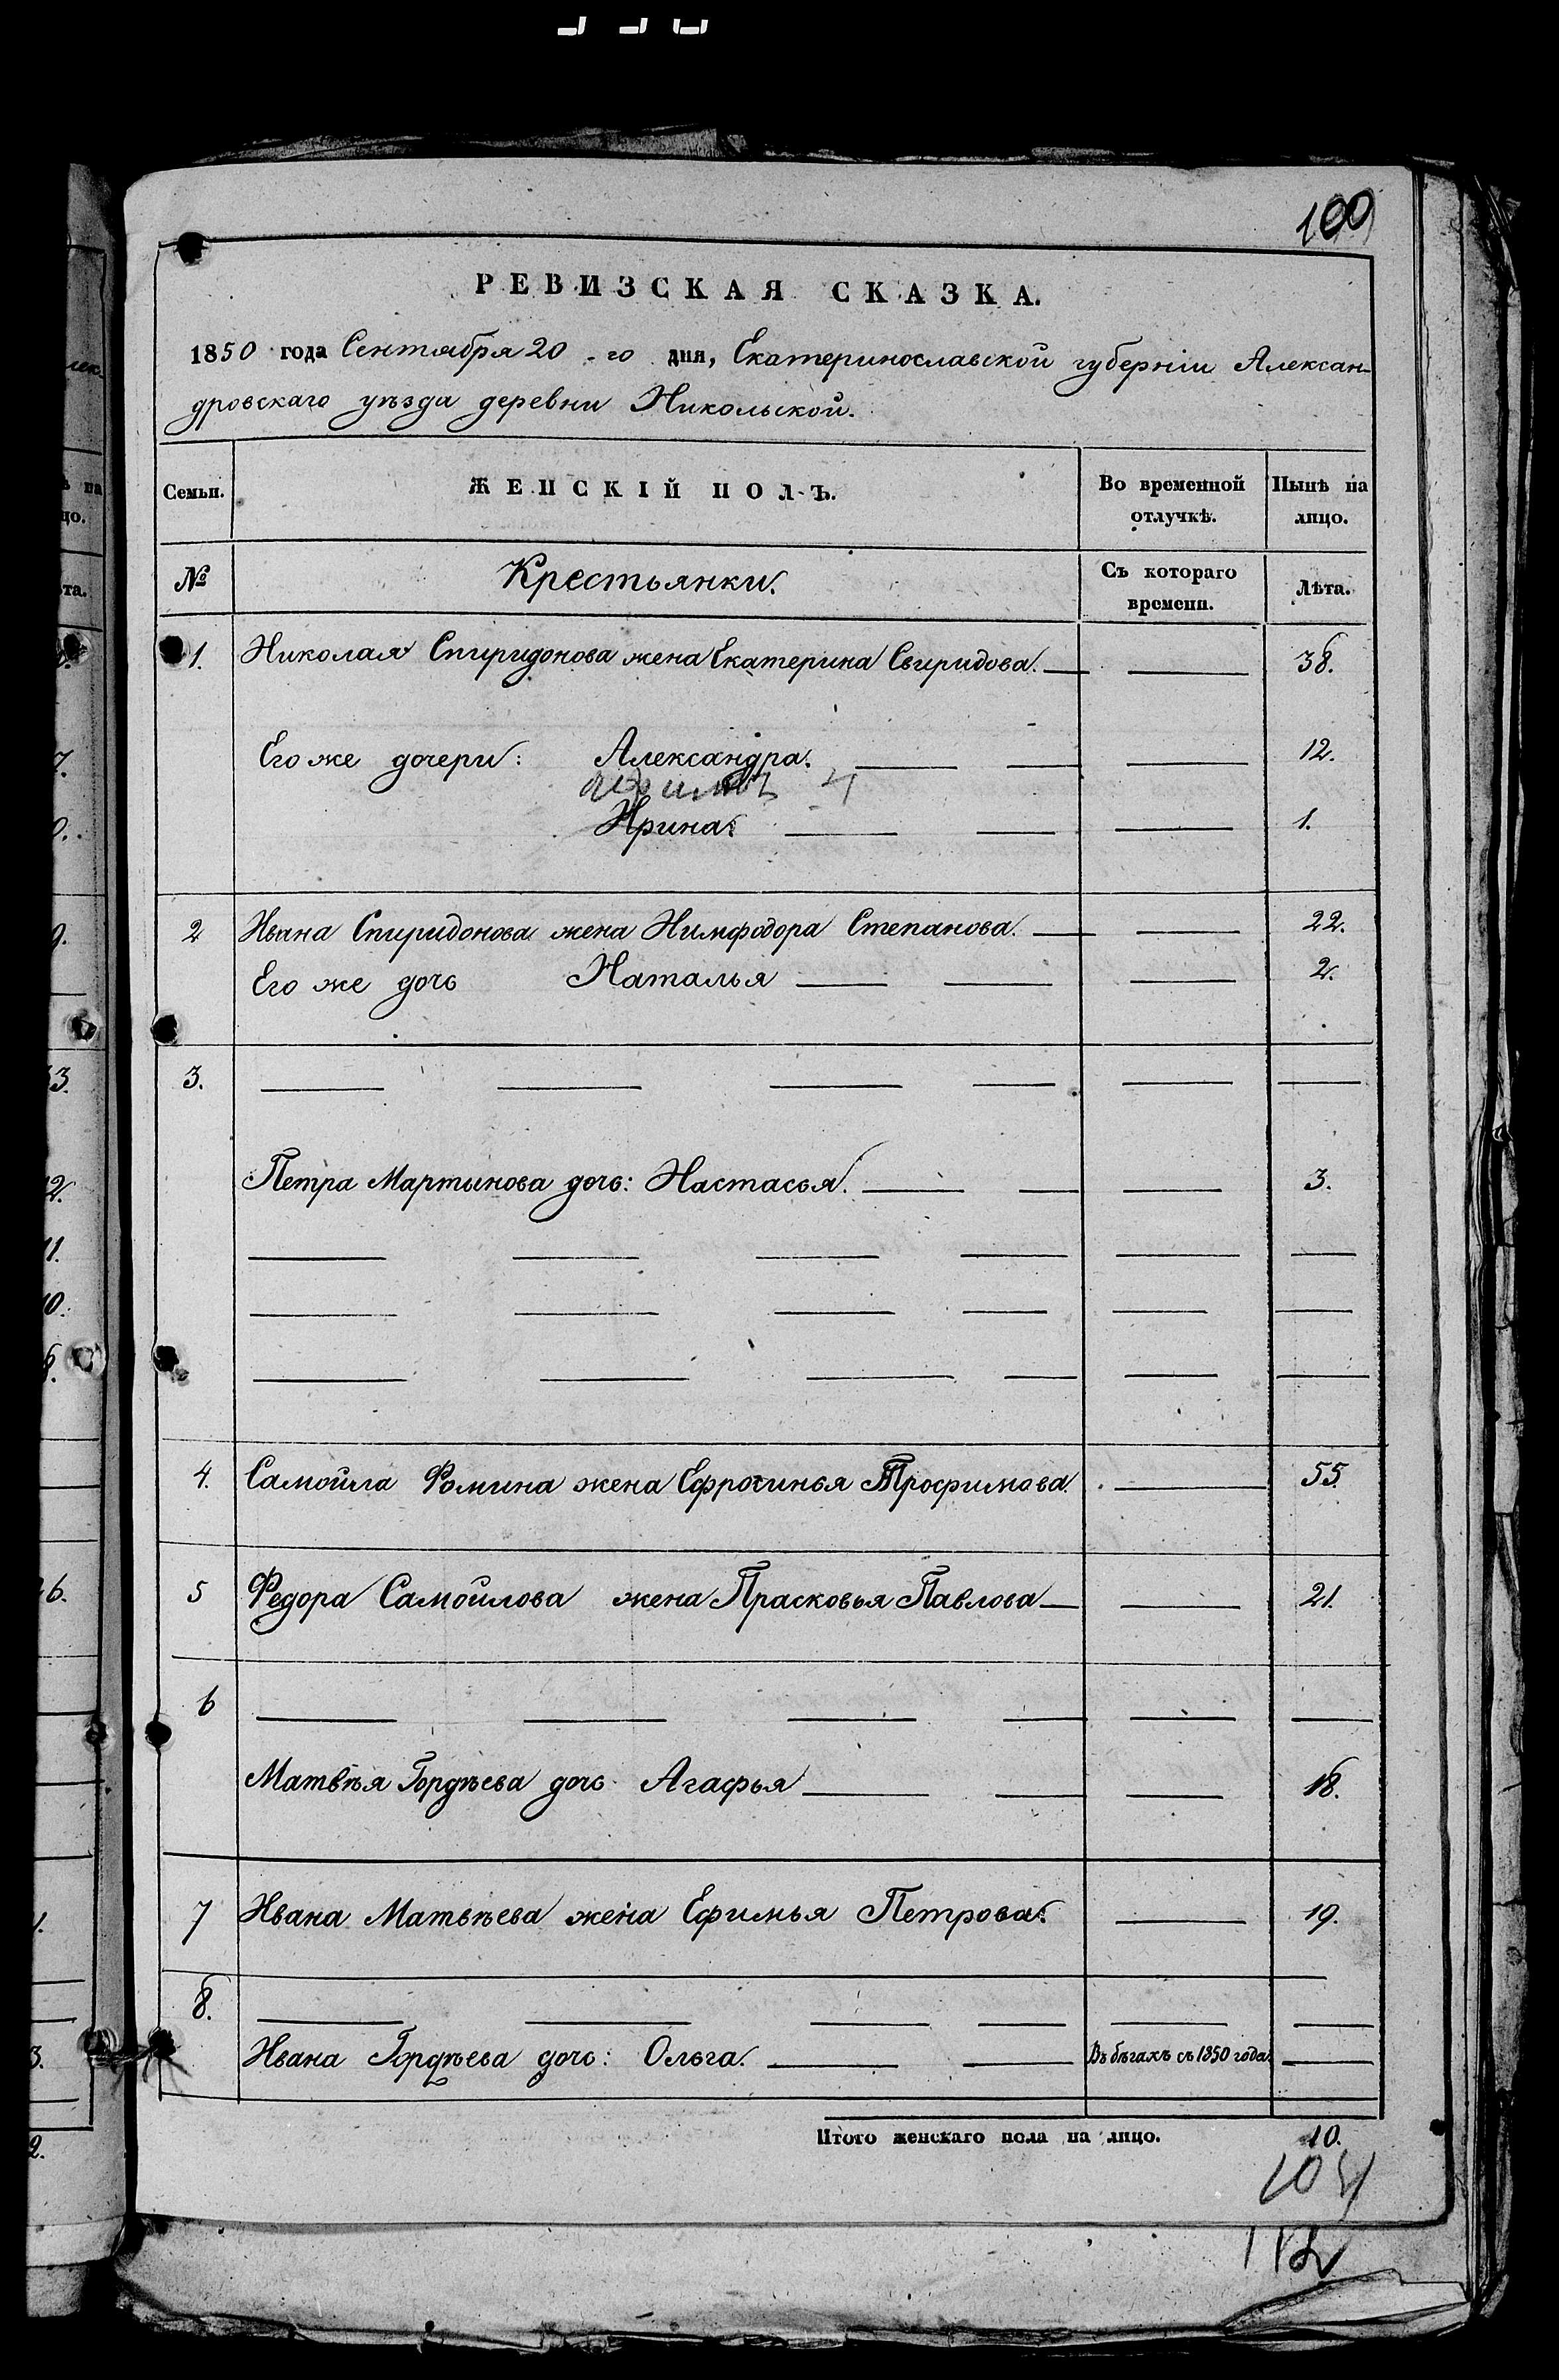 100
РЕВИЗСКАЯ СКАЗКА.
1850 года Сентября 20-го дня, Екатеринославской губернiи Алексан-
дровскаго уѣзда деревни Никольской.
Семьи. ЖЕНСКIЙ ПОЛЪ. Во временной отлучкѣ. Нынѣ на лицо.
№ Крестьянки. Съ котораго времени. Лѣта.
1. Николая Спиридонова жена Екатерина Свиридова. — — 38.
Его же дочери: Александра. — — — 12.
Ирина. — — — 1.
2 Ивана Спиридонова жена Нимфодора Степанова. — — 22.
Его же дочь Наталья — — — 2.
3. — — — — — —
Петра Мартынова дочь: Настасья. — — — 3.
— — — — — —
— — — — — —
— — — — — —
4. Самойла Фомина жена Ефросинья Трофимова. — 55.
5 Федора Самойлова жена Прасковья Павлова — — 21.
6 — — — — — —
Матвѣя Гордѣева дочь Агафья — — — 18.
7 Ивана Матвѣева жена Ефимья Петрова. — 19.
8. — — — — — —
Ивана Гордѣева дочь: Ольга. — — Въ бѣгахъ съ 1850 года. —
Итого женскаго пола на лицо. 10.